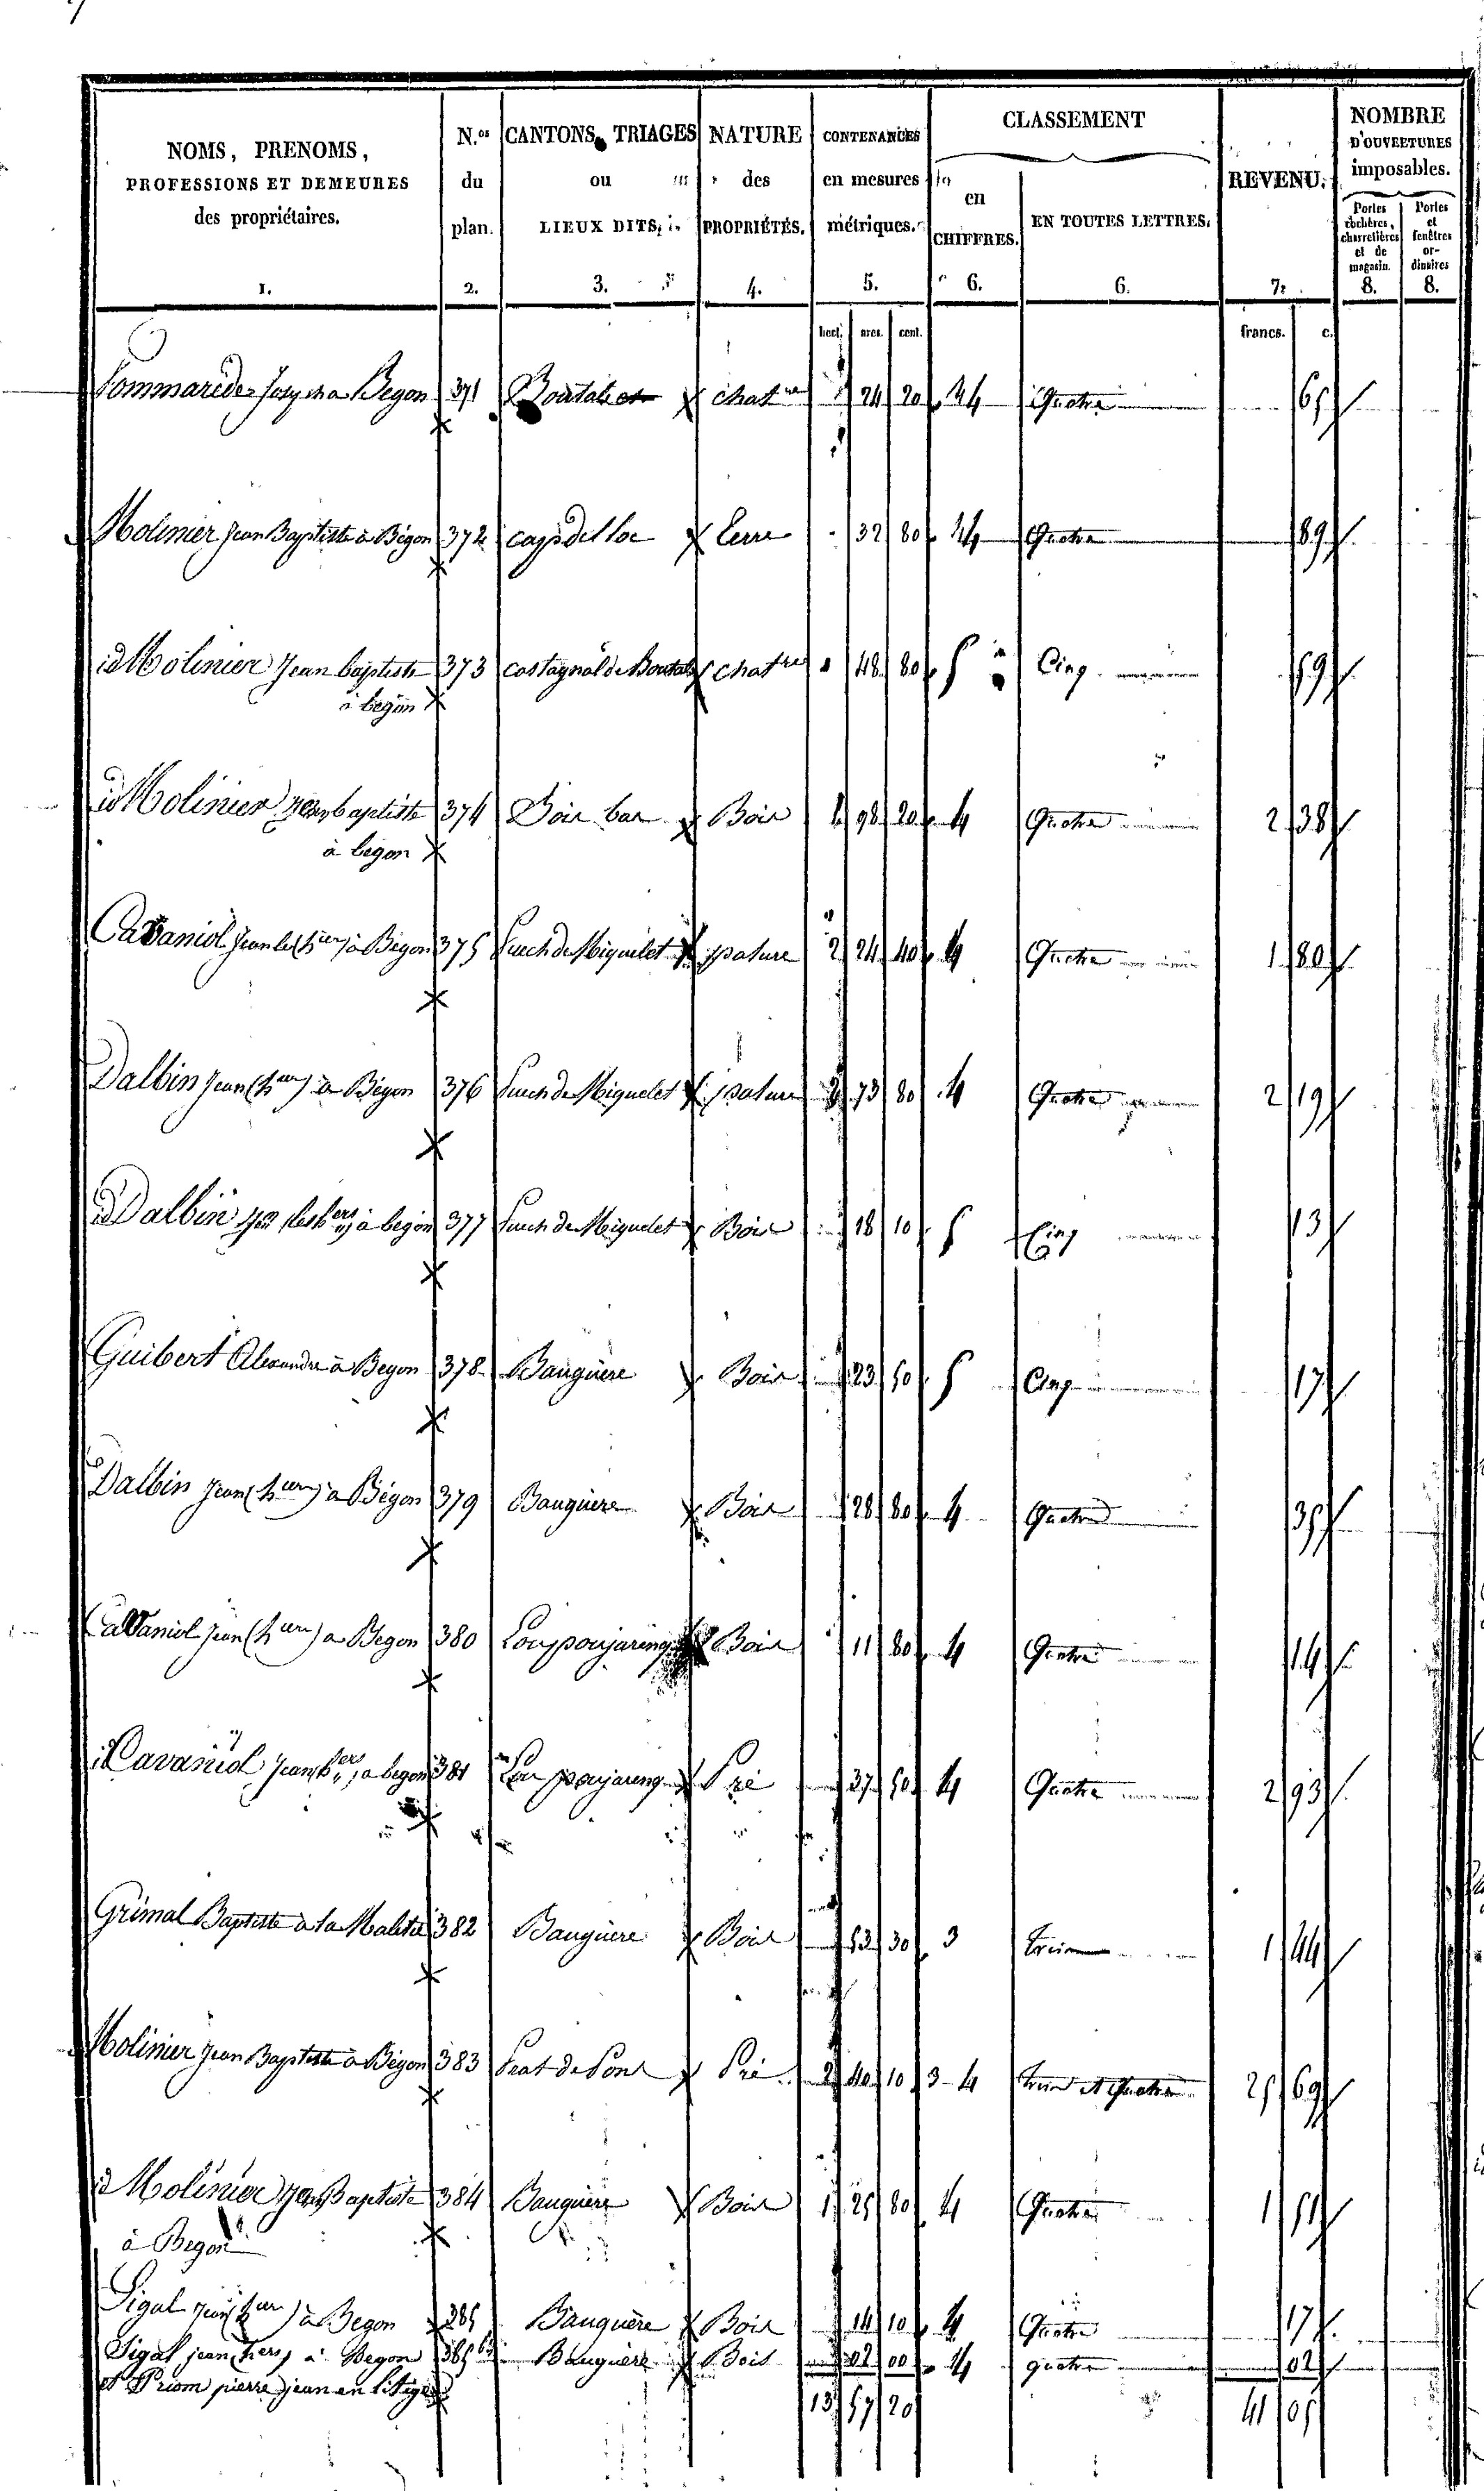 NOMS, PRENOMS, PROFESSIONS ET DEMEURES des propriétaires. 1.
N.os du plan. 2.
CANTONS, TRIAGES ou LIEUX DITS, 3.
NATURE des PROPRIÉTÉS. 4.
CONTENANCES en mesures métriques. 5.
CLASSEMENT
en CHIFFRES. 6.
EN TOUTES LETTRES. 6.
REVENU. 7.
NOMBRE D'OUVERTURES imposables.
Portes cochères, charretières et de magasin. 8.
Portes et fenêtres ordinaires 8.
hect. ares. cent. francs. c.
à Begon 371 chat re 24 20 4 Quatre 65
Molinier Jean Baptiste à Bégon 372 cap del loc terre 32 80 4 Quatre 89
id Molinier Jean baptiste 373 chat re 48 80 5 Cinq 59
à begon
id Molinier Jean baptiste 374 Bois bas Bois 1 98 20 4 Quatre 2 38
à begon
Cavaniol Jean (hers) à Bégon 375 Puech de Miquelet pature 2 24 40 4 Quatre 1 80
Dalbin Jean (hers) à Bégon 376 Puech de Miquelet pature 2 73 80 4 Quatre 2 19
id Dalbin Jean (les hers) à begon 377 Puech de Miquelet Bois 18 10 5 Cinq 13
Guibert Alexandre à Begon 378 Bauguiere Bois 23 50 5 Cinq 17
Dalbin Jean (hers) à Bégon 379 Bauguiere Bois 28 80 4 Quatre 35
Cavaniol Jean (hers) a Begon 380 Bois 11 80 4 Quatre 14
id Cavaniol Jean (hers) a begon 381 Pré 37 50 4 Quatre 2 93
Grimal Baptiste à la 382 Bauguiere Bois 53 30 3 trois 1 44
Molinier Jean Baptiste à Bégon 383 Prat de Pons Pré 2 40 10 3-4 trois et Quatre 25 69
id Molinier Jean Baptiste 384 Bauguiere Bois 1 25 80 4 Quatre 1 51
à Begon
Sigal Jean (hers) à Begon 385 Bauguière Bois 14 10 4 Quatre 17
Sigal jean (hers) à Begon 385 bis Bauguière Bois 02 00 4 quatre 02
et Priom pierre jean en litige
13 57 20 41 05